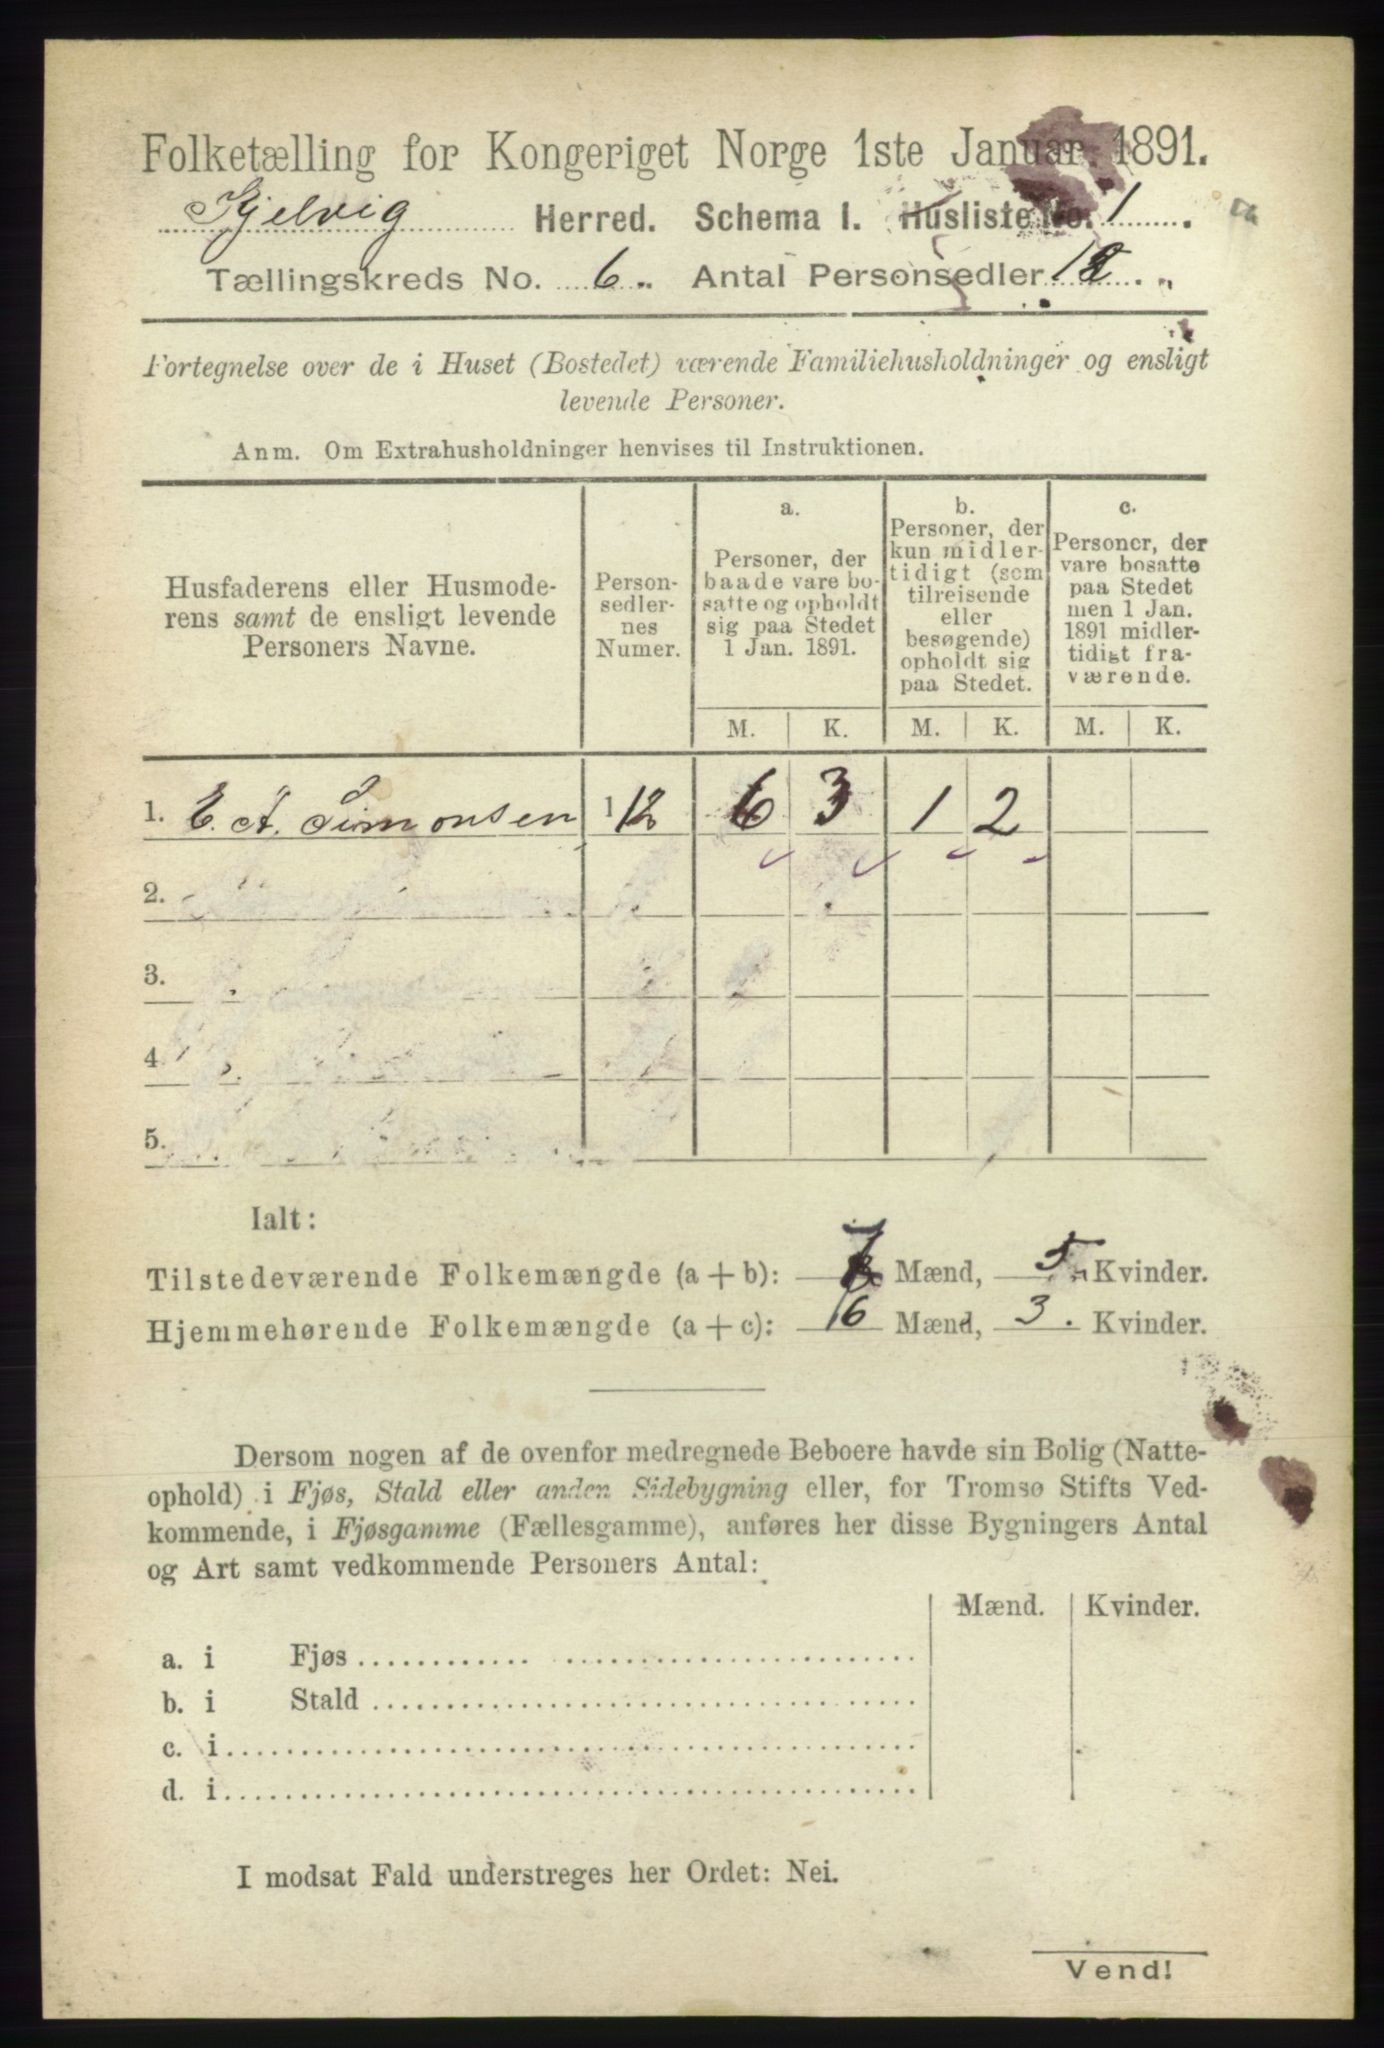 Folketælling for Kongeriget Norge 1ste Januar 1891.
Kjelvig Herred. Schema I. Husliste No. 1
Tællingskreds No. 6. Antal Personsedler 12
Fortegnelse over de i Huset (Bostedet) værende Familiehusholdninger og ensligt
levende Personer.
Anm. Om Extrahusholdninger henvises til Instruktionen.
Husfaderens eller Husmode-
rens samt de ensligt levende
Personers Navne.
Person-
sedler-
nes
Numer.
a.
Personer, der
baade vare bo-
satte og opholdt
sig paa Stedet
1 Jan. 1891.
b.
Personer, der
kun midler-
tidigt (som
tilreisende
eller
besøgende)
opholdt sig
paa Stedet.
c.
Personer, der
vare bosatte
paa Stedet
men 1 Jan.
1891 midler-
tidigt fra-
værende.
M. K. M. K. M. K.
1. E. A. Simonsen 12 6 3 1 2
2.
3.
4.
5.
Ialt:
Tilstedeværende Folkemængde (a + b): 7 Mænd, 5 Kvinder.
Hjemmehørende Folkemængde (a + c): 6 Mænd, 3. Kvinder.
Dersom nogen af de ovenfor medregnede Beboere havde sin Bolig (Natte-
ophold) i Fjøs, Stald eller anden Sidebygning eller, for Tromsø Stifts Ved-
kommende, i Fjøsgamme (Fællesgamme), anføres her disse Bygningers Antal
og Art samt vedkommende Personers Antal:
Mænd. Kvinder.
a. i Fjøs
b. i Stald
c. i
d. i
I modsat Fald understreges her Ordet: Nei.
Vend!